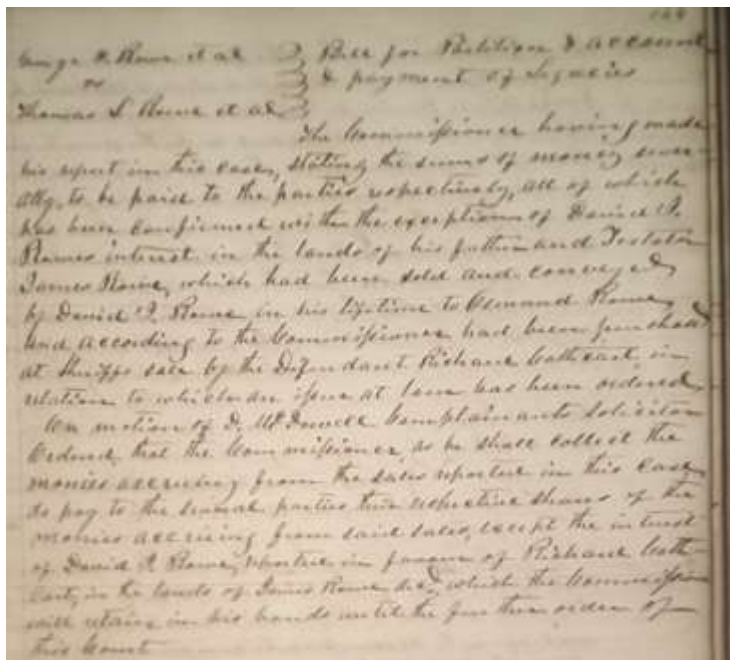 George H. Rowe et al } Bill for Partition & account
vs } & payment of Legacies
Thomas S Rowe et al
The Commissioner having made
his report in this case, stating the sums of money sever-
ally, to be paid to the parties respectively, all of which
has been confirmed with the exception of David P.
Rowes interest in the lands of his father and Testator
James Rowe, which had been sold and conveyed
by David P. Rowe in his lifetime to Osmond Rowe,
and according to the Commissioner had been purchased
at Sheriffs sale by the Defendant Richard Cathcart, in
relation to which an issue at law has been ordered,
On motion of D. McDowell Complainants Solicitor
Ordered that the Commissioner, as he shall collect the
monies accruing from the sales reported in this case
do pay to the several parties their respective shares of the
monies accruing from said sales, except the interest
of David P. Rowe, reported in favour of Richard Cath-
cart, in the lands of James Rowe decd, which the Commissioner
will retain in his hands until the further order of
this Court